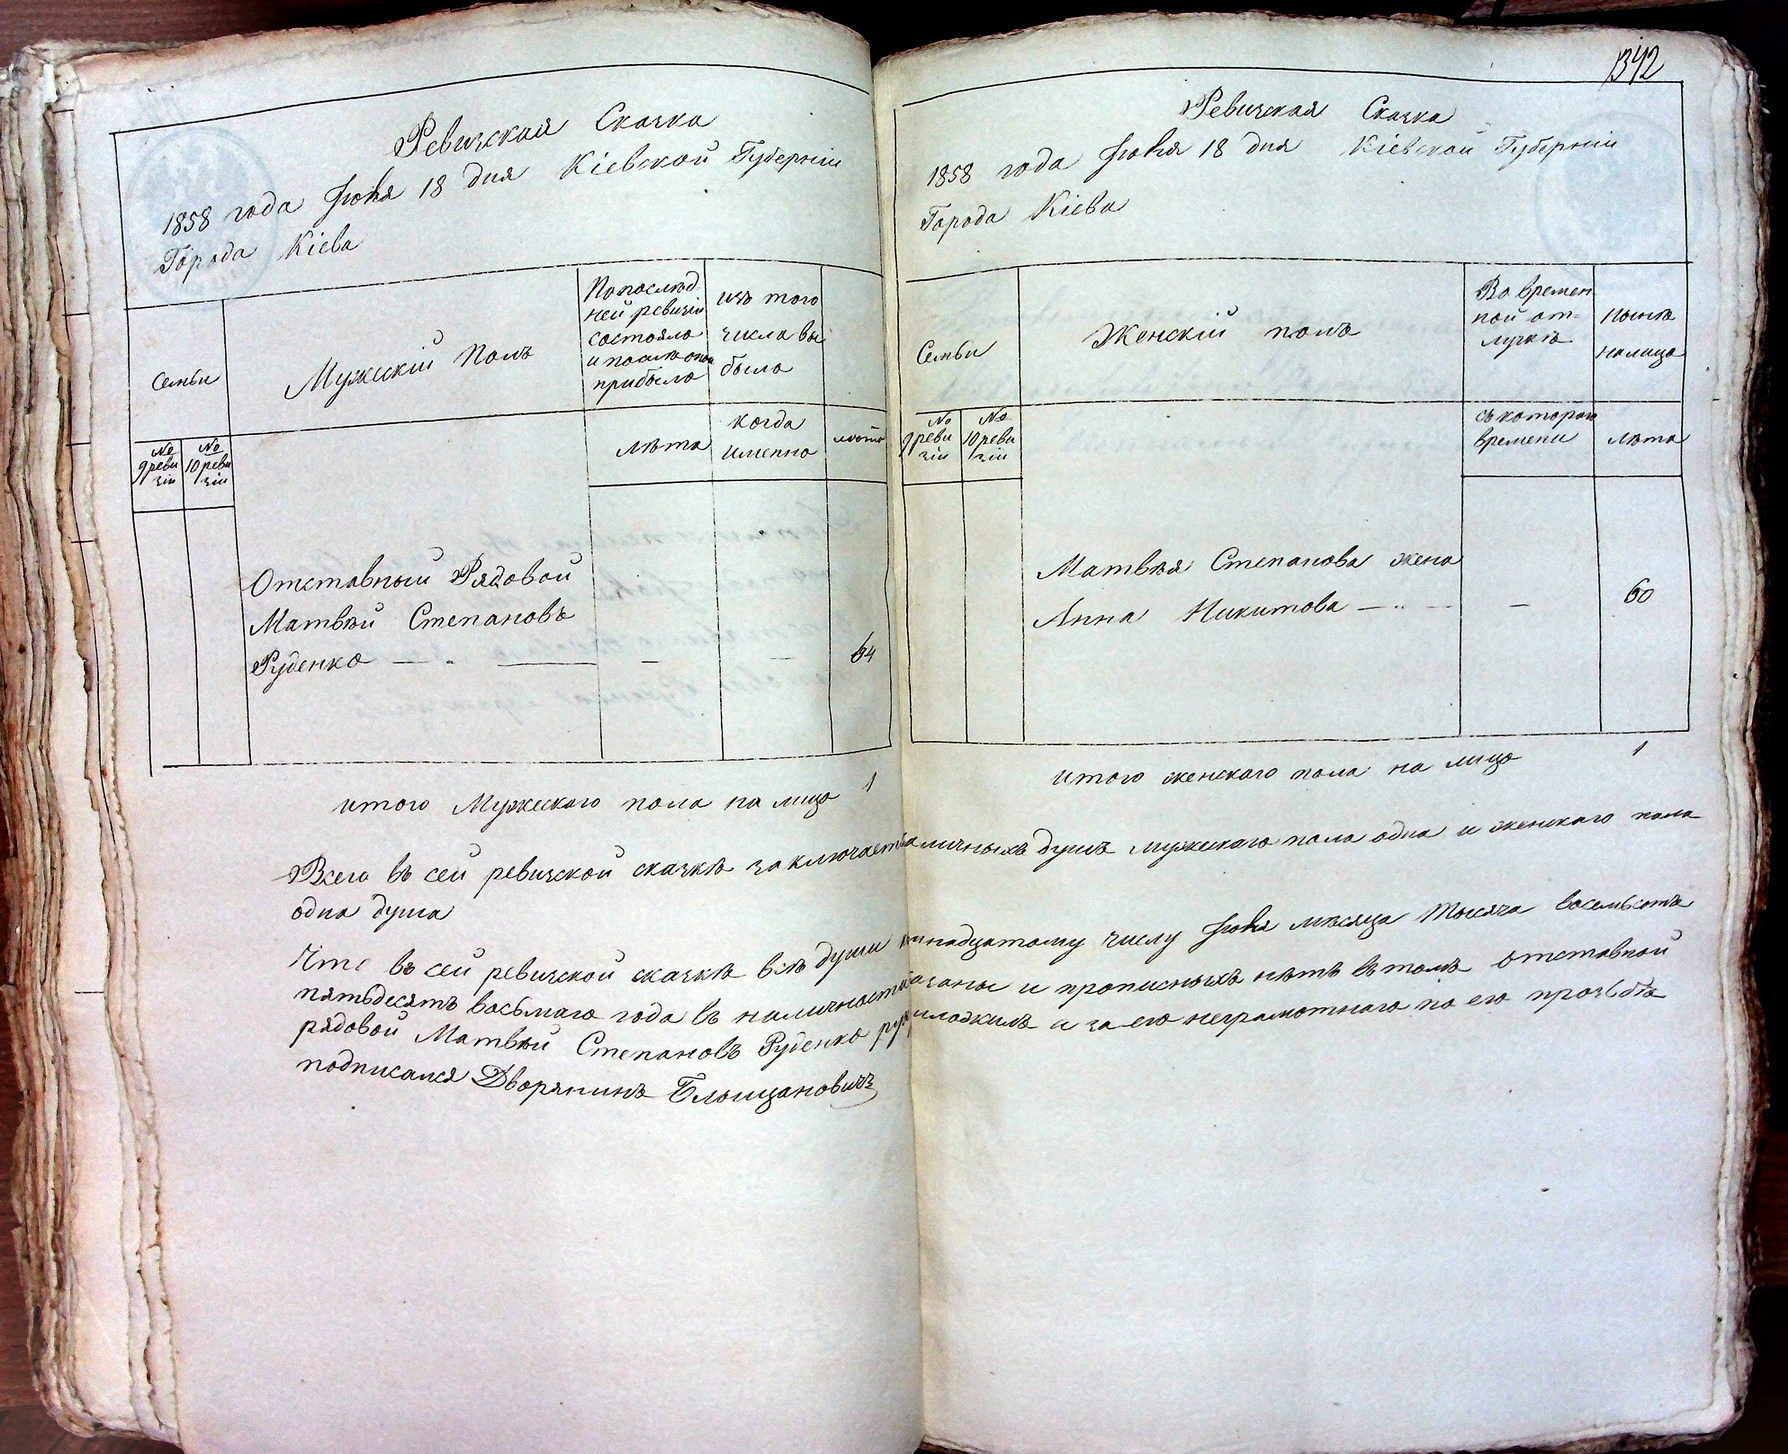 Ревизская Сказка
1858 года Іюня 18 дня Кіевской Губерніи
Города Кіева
Семьи
Мужескій Полъ
По послѣд
ней ревизіи
состояло
и послѣ оной
прибыло
изъ того
числа вы
было
№
9 реви
зіи
№
10 реви
зіи
лѣта
когда
именно
лѣта
Отставный Рядовой
Матвѣй Степановъ
Руденко — „ — — — 64
итого Мужескаго пола на лицо 1
1342
Ревизская Сказка
1858 года Іюня 18 дня Кіевской Губерніи
Города Кіева
Семьи
Женскій полъ
Во времен
ной от-
лучкѣ
нынѣ
налицо
№
9 реви
зіи
№
10 реви
зіи
съ котораго
времени
лѣта
Матвѣя Степанова жена
Анна Никитова — „ — — 60
итого женскаго пола на лицо 1
Всего въ сей ревизской сказкѣ заключается наличныхъ душъ мужескаго пола одна и женскаго пола
одна душа
Что въ сей ревизской сказкѣ всѣ души надцатому числу Іюня мѣсяца тысяча восемьсотъ
пятьдесятъ восьмаго года въ наличности показаны и прописныхъ нѣтъ въ томъ отставной
рядовой Матвѣй Степановъ Руденко руку приложилъ а за его неграмотнаго по его прозьбѣ
подписался Дворянинъ